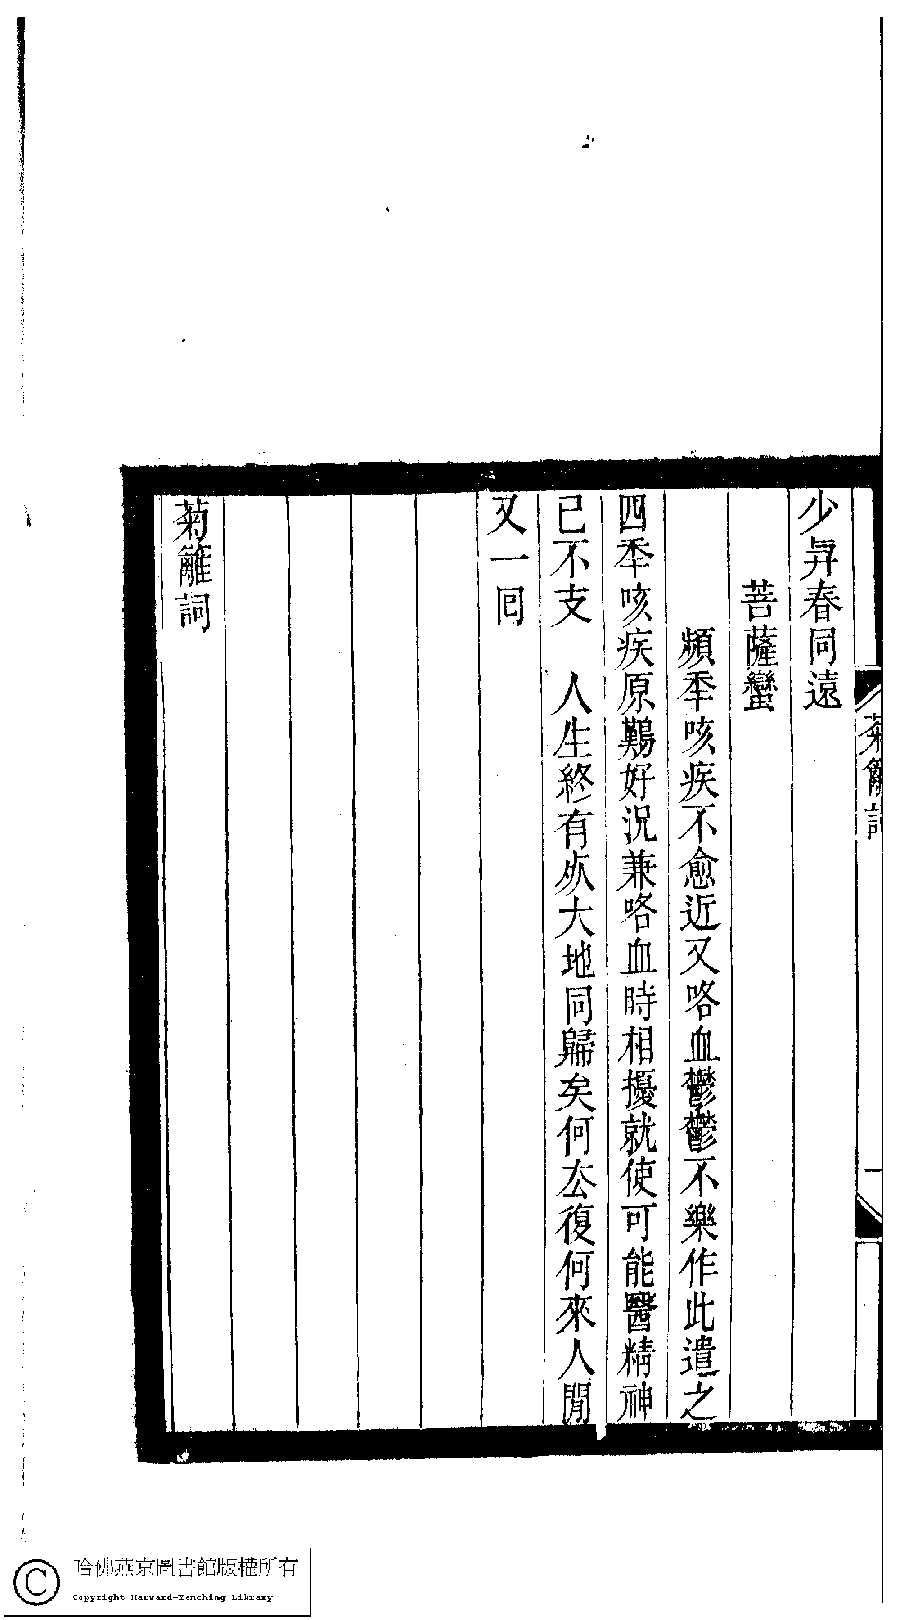 菊籬詞
少昇春同遠
菩薩蠻
頻秊咳疾不愈近又咯血鬱鬱不樂作此遣之
四秊咳疾原難好況兼咯血時相擾就使可能醫精神
已不支　人生終有𣦸大地同歸矣何厺復何來人閒
又一回
菊籬詞
哈佛燕京圖書館版權所有
Copyright Harvard-Yenching Library